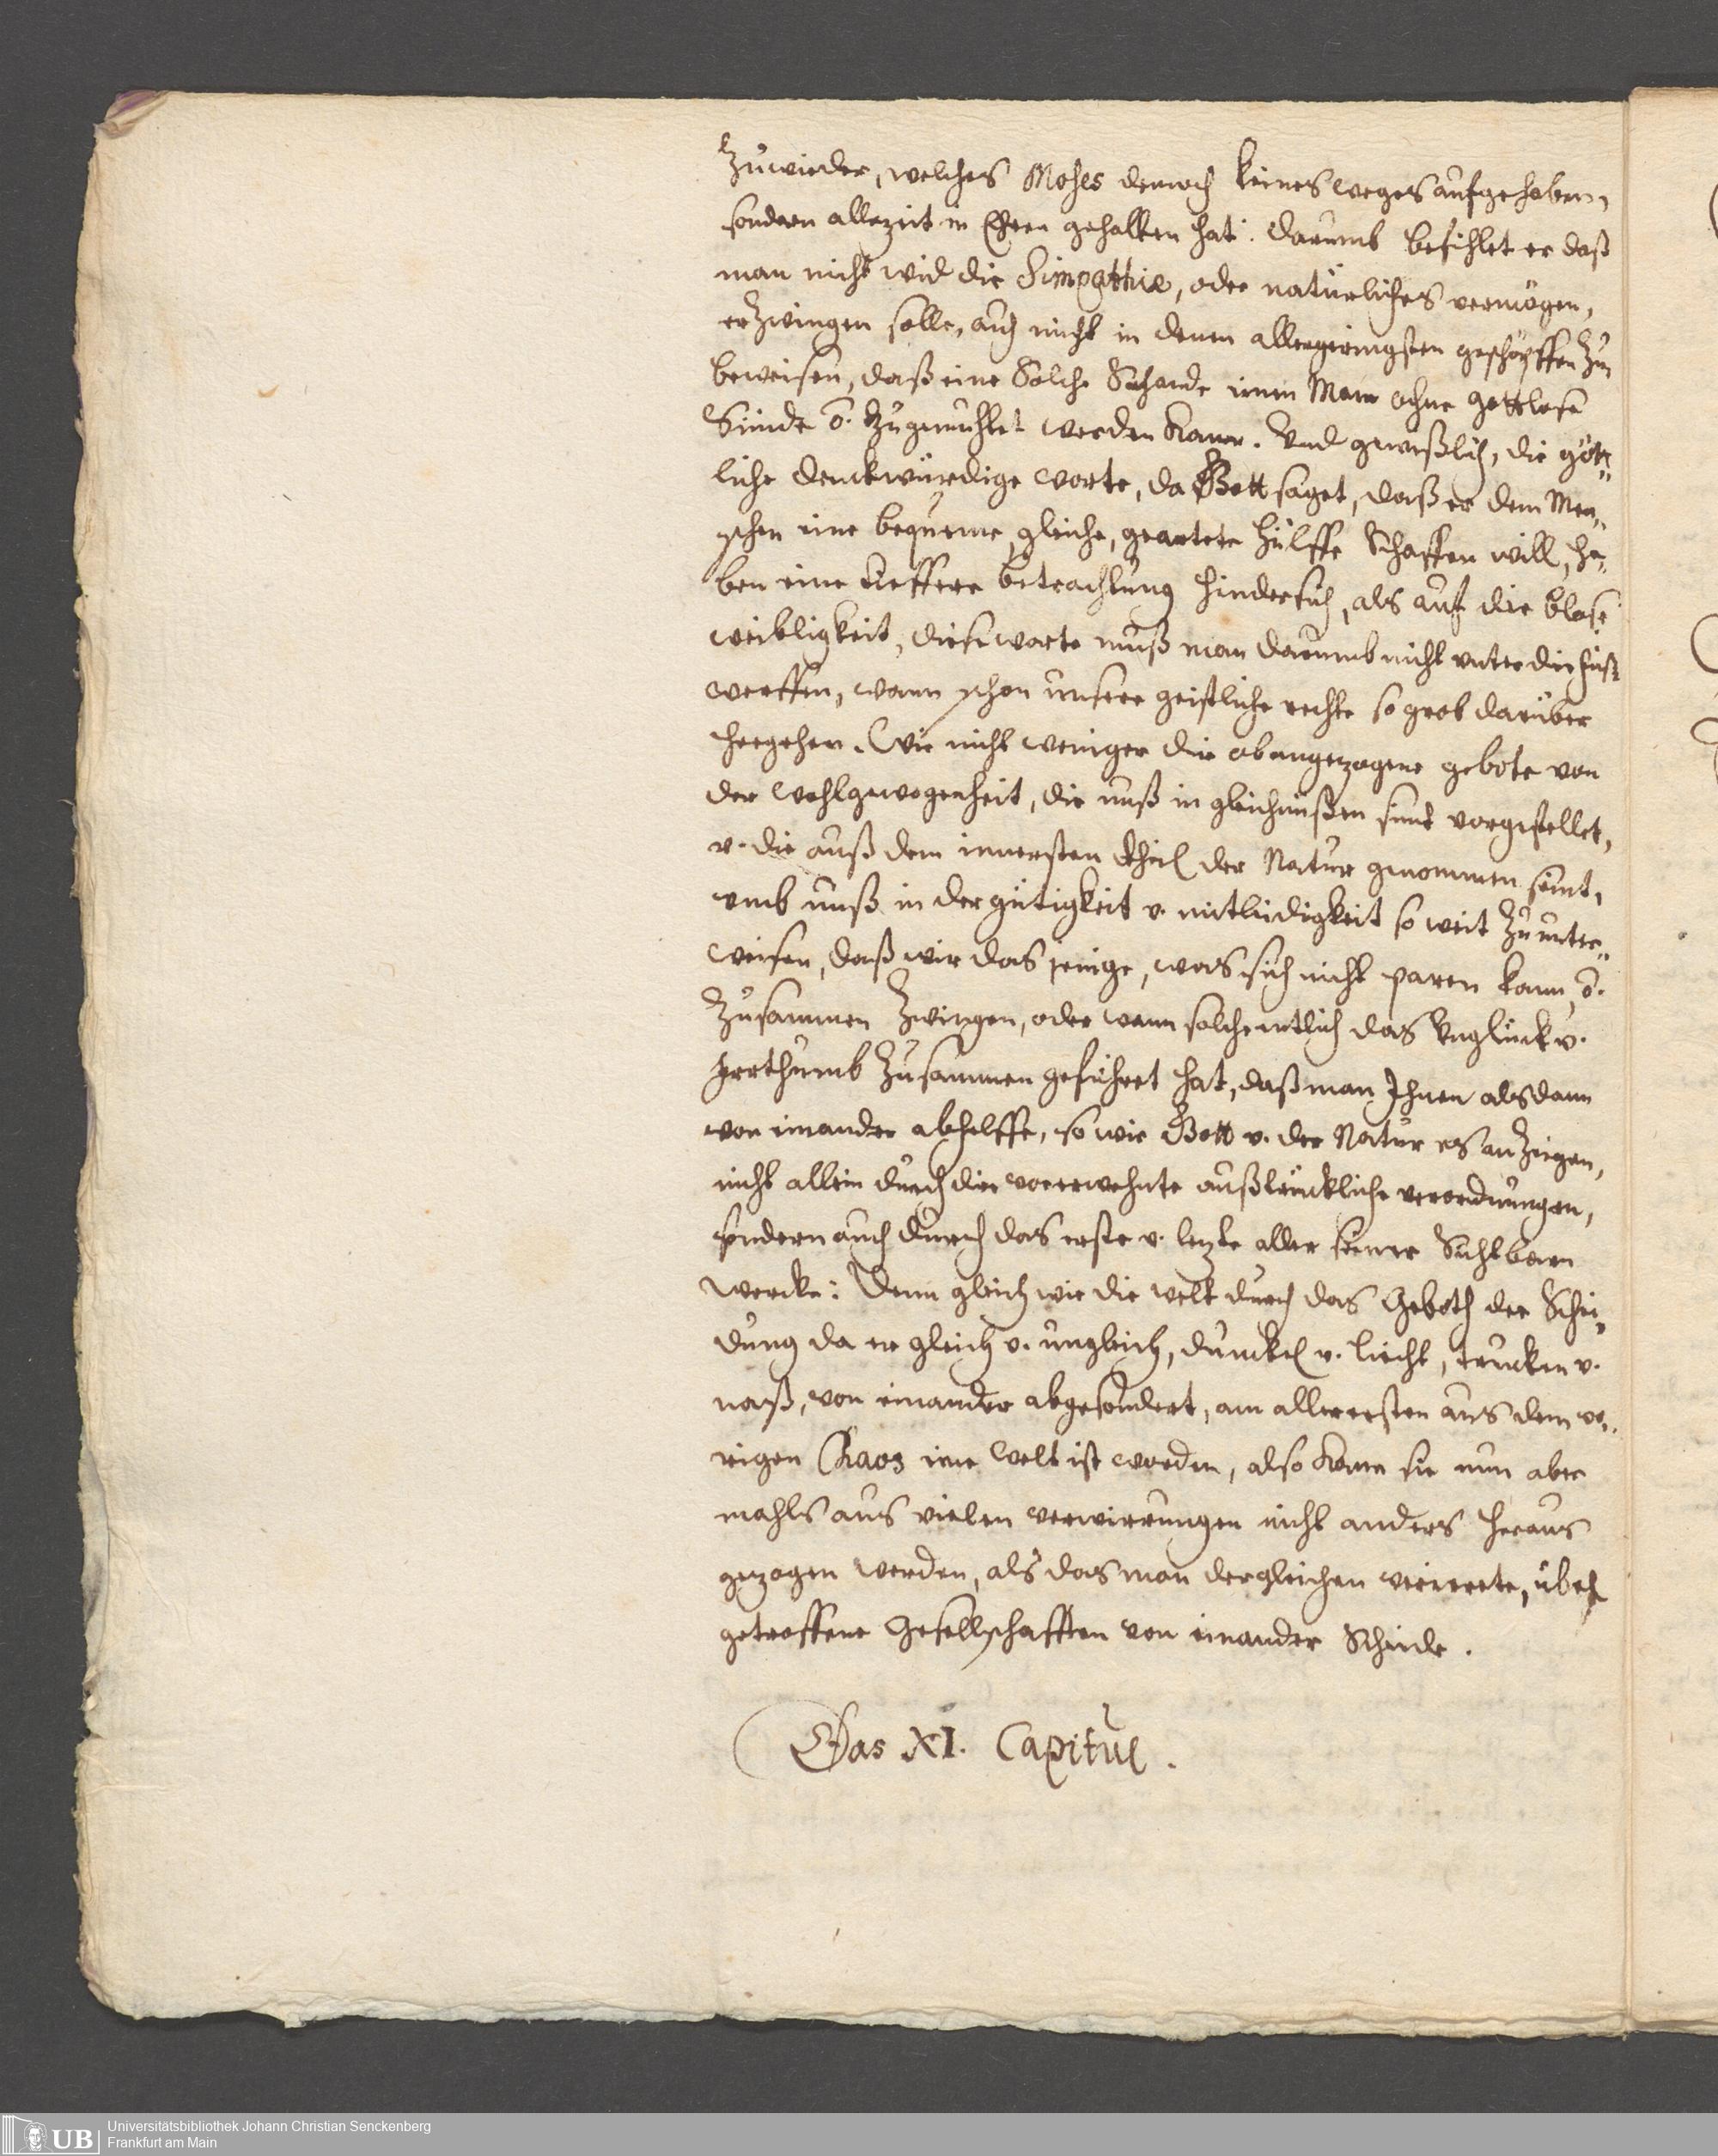 Zuwieder, welches Moses dennoch keines weges aufgehaben,
sondern allezeit in Ehren gehalten hat. Darumb befihlet er daß
man nicht wid die Simpathie, oder natürliches vermögen,
erzwingen solle, auch nicht in denen allergeringsten geschöpffen Zu
beweisen, daß eine Solche Schande einem Mann ohne gottlose
Sünde ō. Zugemuhtet werden kann. Und gewißlich, die gött„
liche denckwürdige worte, da Gott saget, daß er dem Men„
schen eine bequeme, gleiche, geartete hülffe Schaffen will, ha„
ben eine tieffere betrachtung hinder sich, als auf die blose
weibligkeit, diese worte muß man darumb nicht unter die füße
werffen, wann schon unsere geistliche rechte so grob darüber
hergehen. Wie nicht weniger die obangezogene gebote von
der wohlgewogenheit, die unß in gleichnüßen sint vorgestellet,
v. die auß dem innersten theil der Natur genommen seint,
umb unß in der gütigkeit v. mitleidigkeit so weit Zu unter„
weisen, daß wir das jenige, was sich nicht paren kann, ō.
Zusammen Zwingen, oder wann solche entlich das Unglück v.
Irrthumb Zusammen geführet hat, daß man Ihnen alsdann
von einander abhelffe, so wie Gott v. der Natur es anzeigen,
nicht allein durch die vorerwehnte außtrückliche verordnungen,
sondern auch durch das erste v. letzte aller seiner Sichtbaren
wercke: Denn gleich wie die welt durch das Geboth der Schei„
dung da er gleich v. ungleich, dunckel v. liecht, trucken v.
naß, von einander abgesondert, am allerersten aus dem vo„
rigen Chaos eine welt ist worden, also kann sie nun aber
mahls aus vielen verwirrungen nicht anders heraus
gezogen werden, als das man dergleichen verirrete, übel
getroffene Gesellschafften von einander Scheide.
Das XI. Capitul.
UB Universitätsbibliothek Johann Christian Senckenberg
Frankfurt am Main